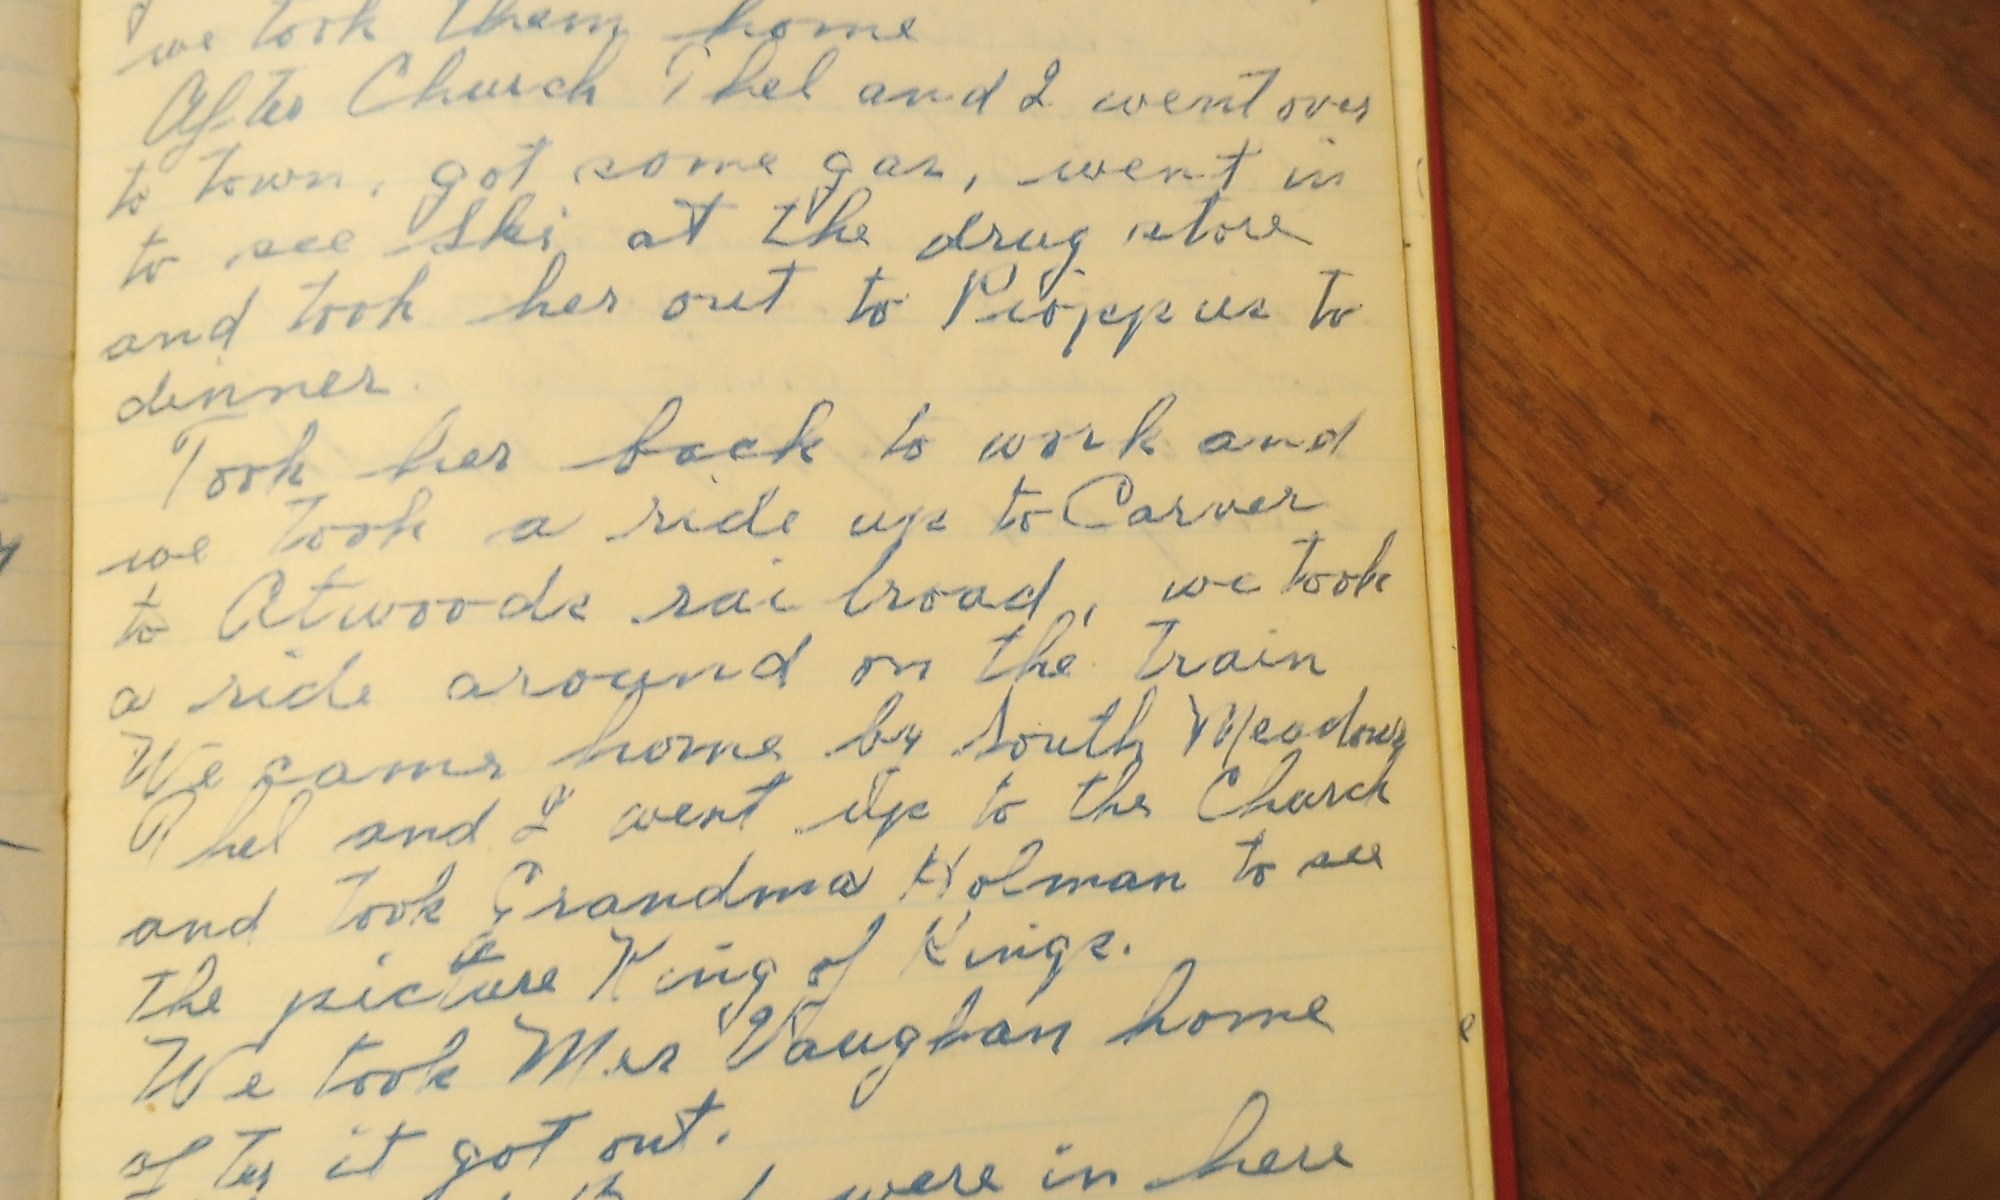 we took them home
After Church Thel and I went over
to town, got some gas, went in
to see Ski at the drug store
and took her out to Pioppus to
dinner.
Took her back to work and
we took a ride up to Carver
to Atwoods railroad, we took
a ride around on the train
We came home by South Meadows
Thel and I went up to the Church
and took Grandma Holman to see
the picture King of Kings.
We took Mrs Vaughan home
after it got out.
were in here